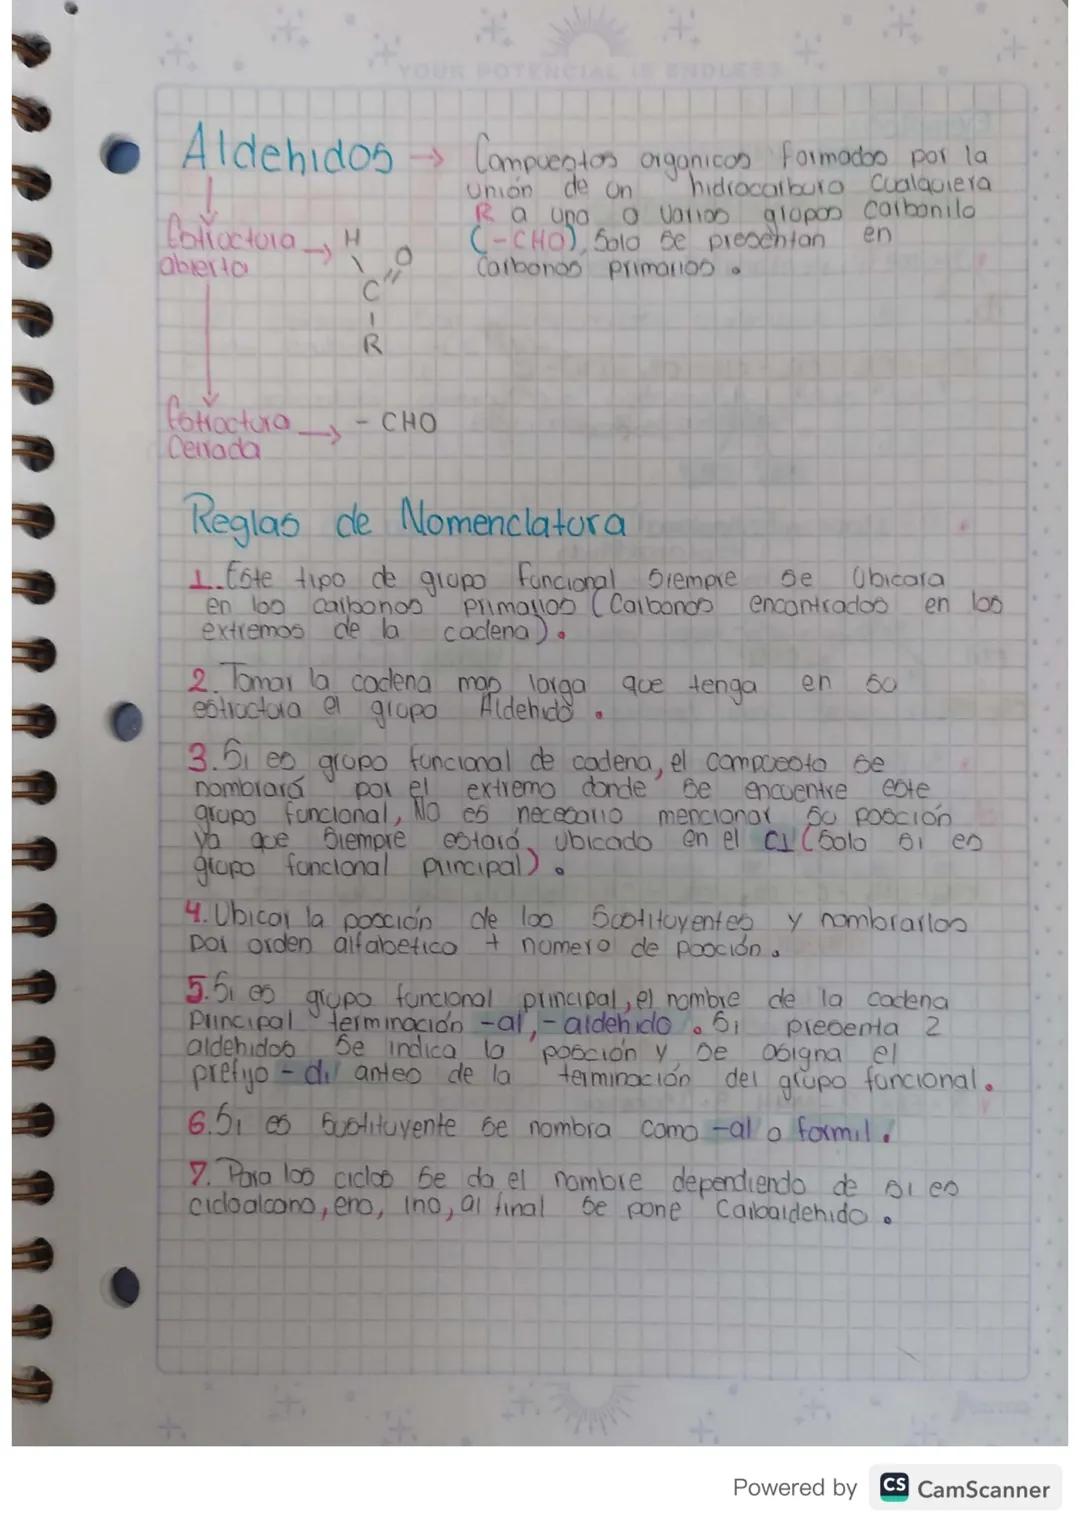 YOUR POTENCIAL IS ENDLESS
Aldehidos → Compuestos organicos formados por la
unión de un hidrocarburo cualquiera
R a uno o varios grupos carbonilo
(-CHO), Solo se presentan en
carbonos primarios.
Estructura → H
abierta
O
C
R
Estructura → - CHO
Cerrada
Reglas de Nomenclatura
1. Este tipo de grupo Funcional Siempre se Ubicara
en los carbonos primarios (Carbonos encontrados en los
extremos de la cadena).
2. Tomar la cadena mas larga que tenga en su
estructura el grupo Aldehido.
3. Si es grupo funcional de cadena, el compuesto se
nombrará por el extremo donde se encuentre este
grupo funcional, NO es necesario mencionar su posción
ya que Siempre estará ubicado en el C1 (Solo si es
grupo funcional principal).
4. Ubicar la posción de los Sustituyentes y nombrarlos
por orden alfabetico + numero de posción.
5. Si es grupo funcional principal, el nombre de la cadena
Principal terminación -al, -aldehido. Si presenta 2
aldehidos Se indica la posción y se asigna el
prefijo -di antes de la terminación del grupo funcional.
6. Si es Sustituyente se nombra como -al o formil.
7. Para los ciclos Se da el nombre dependiendo de si es
cicloalcano, eno, ino, al final se pone Carbaldehido.
Powered by CS CamScanner